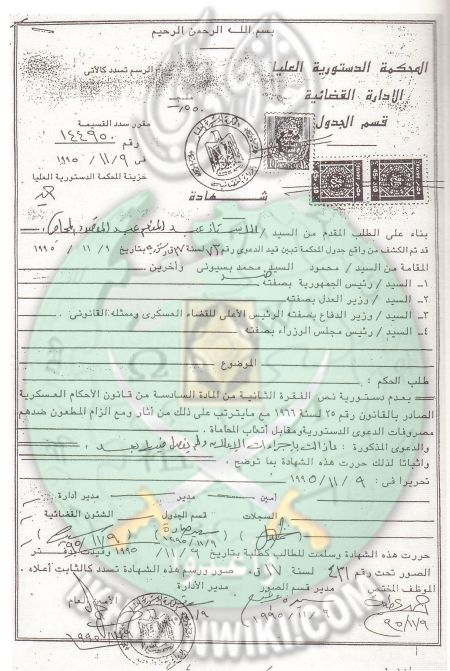 بسم الله الرحمن الرحيم
المحكمة الدستورية العليا
الرسم تسدد كالآتى
الإدارة القضائية
قسم الجدول
مقرر سدد القسيمة
رقم ١٤٤٩٥٠
فى ٩/ ١١/ ١٩٩٥
خزينة المحكمة الدستورية العليا
شهادة
بناء على الطلب المقدم من السيد / الأستاذ عبد المنعم عبد المقصود المحامى
قد تم الكشف من واقع جدول المحكمة تبين قيد الدعوى رقم لسنة ق دستورية بتاريخ ٩/ ١١/ ١٩٩٥
المقامة من السيد / محمود السيد محمد بسيونى وآخرين
ضد
١- السيد / رئيس الجمهورية بصفته
٢- السيد / وزير العدل بصفته
٣- السيد / وزير الدفاع بصفته الرئيس الأعلى للقضاء العسكرى وممثله القانونى
٤- السيد / رئيس مجلس الوزراء بصفته
الموضوع
طلب الحكم :
بعدم دستورية نص الفقرة الثانية من المادة السادسة من قانون الأحكام العسكرية
الصادر بالقانون رقم ٢٥ لسنة ١٩٦٦ مع مايترتب على ذلك من أثار ومع الزام المطعون ضدهم
مصروفات الدعوى الدستورية ومقابل أتعاب المحاماة .
والدعوى المذكورة : مازالت بإجراءات الإعلان ولم يفصل فيها بعد
وأثباتا لذلك حررت هذه الشهادة بما توضح ،
تحريرا فى : ٩/ ١١/ ١٩٩٥
أمين مدير مدير إدارة
السجلات قسم الجدول الشئون القضائية
حررت هذه الشهادة وسلمت للطالب كطلبة بتاريخ ٩/ ١١/ ١٩٩٥ وقيدت بدفتر
الصور تحت رقم ٤٣١ لسنة ١٧ ق، صور ورسم هذه الشهادة تسدد كالثابت أعلاه .
الموظف المختص مدير قسم الصور مدير الإدارة الأمين العام
٩/ ١١/ ١٩٩٥